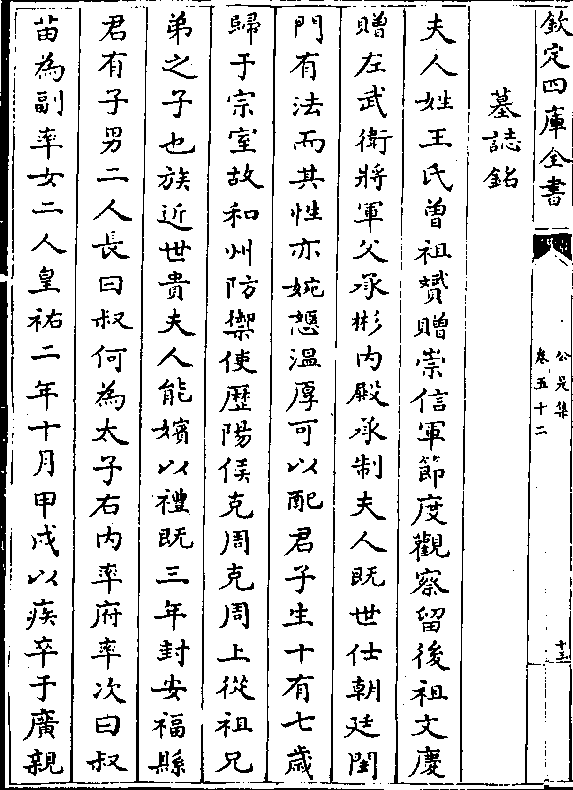 欽定四庫全書
公是集
卷五十二
十五
墓誌銘
夫人姓王氏曾祖贇贈崇信軍節度觀察留後祖文慶
贈左武衛將軍父承彬内殿承制夫人既世仕朝廷閨
門有法而其性亦婉愿温厚可以配君子生十有七歲
歸于宗室故和州防禦使歴陽侯克周克周上從祖兄
弟之子也族近世貴夫人能嬪以禮既三年封安福縣
君有子男二人長曰叔何為太子右内率府率次曰叔
苗為副率女二人皇祐二年十月甲戌以疾卒于廣親